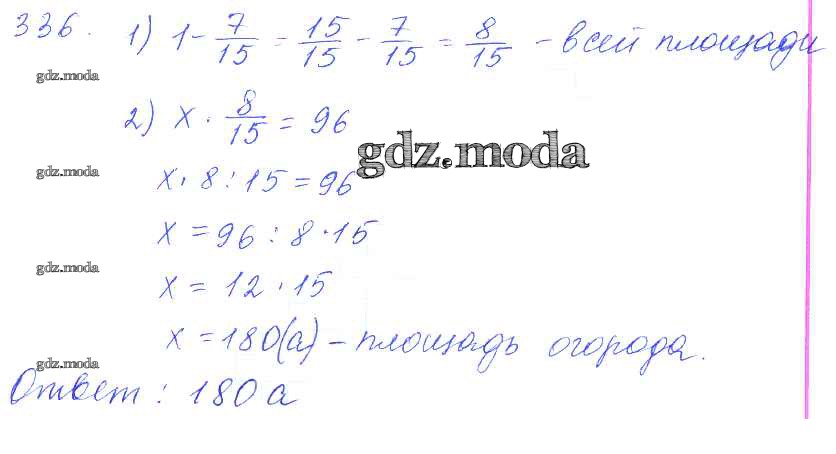 336. 1) 1 - 7/15 = 15/15 - 7/15 = 8/15 - всей площади
gdz.moda
2) x · 8/15 = 96
gdz.moda
gdz.moda
x · 8 : 15 = 96
x = 96 : 8 · 15
gdz.moda
x = 12 · 15
x = 180(а) - площадь огорода.
gdz.moda
Ответ: 180 а